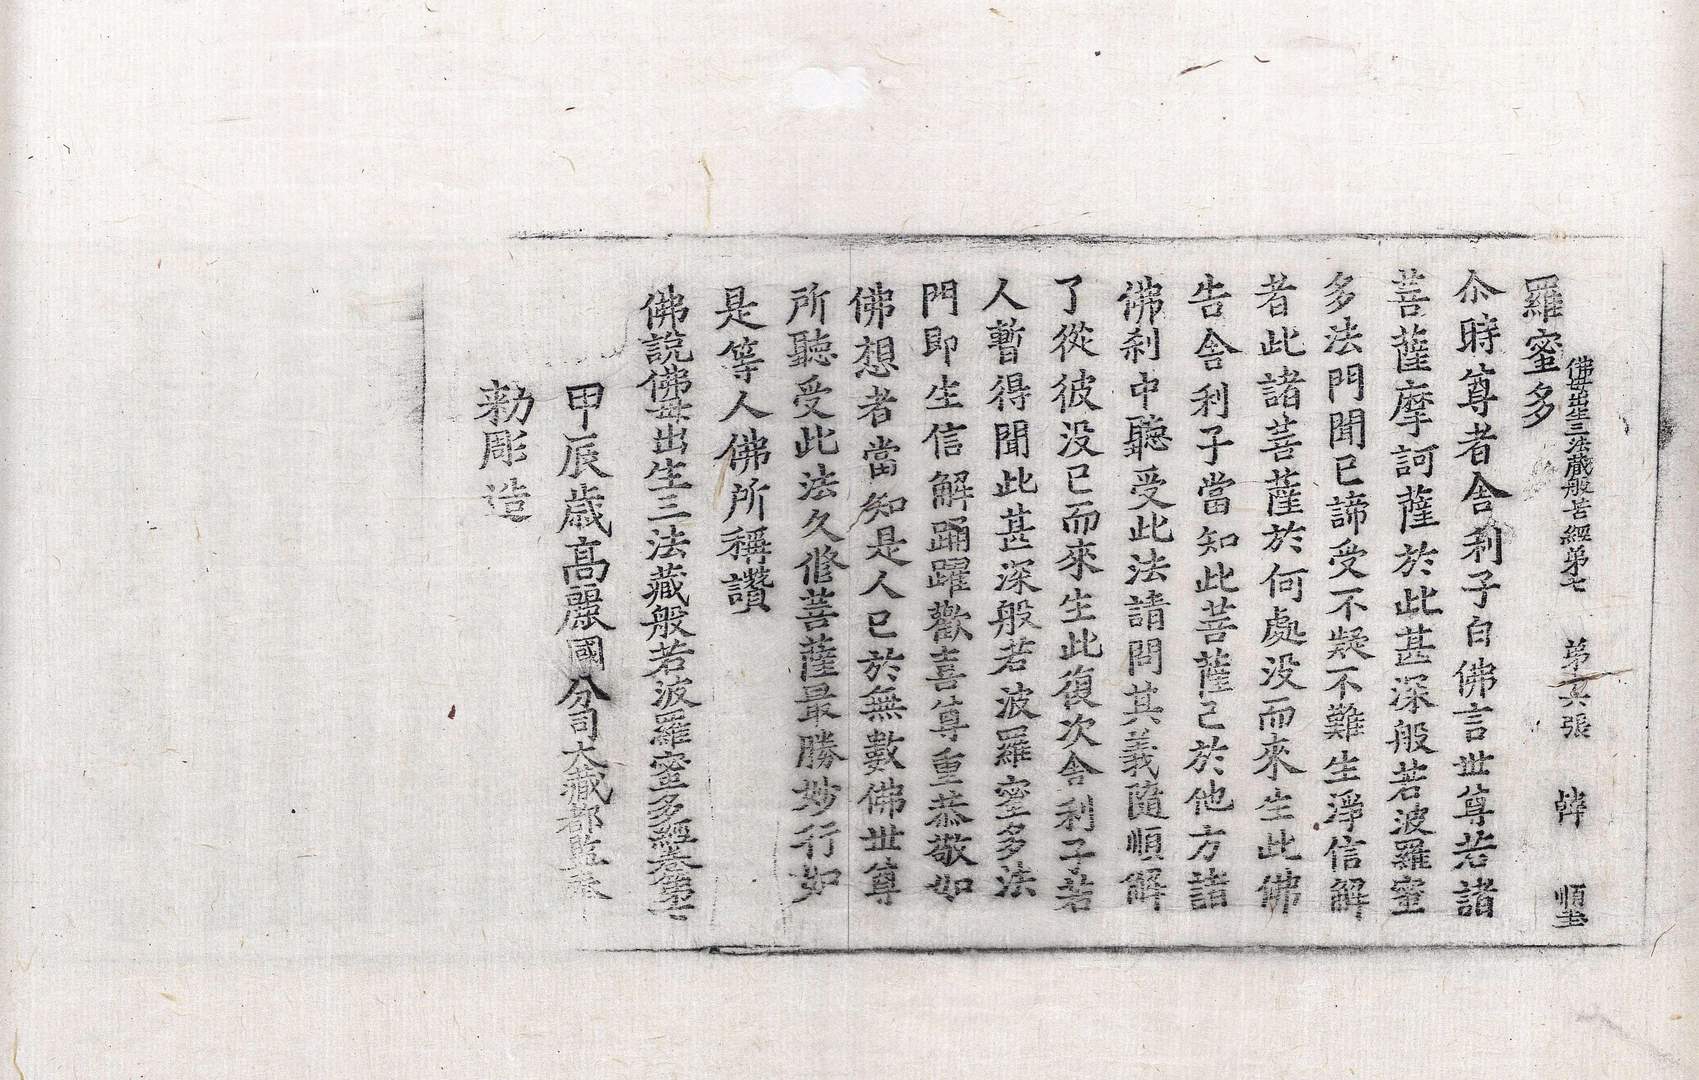 佛母出生三法藏般若經第七　第六張　韓　順圭
羅蜜多
尒時尊者舍利子白佛言世尊若諸
菩薩摩訶薩於此甚深般若波羅蜜
多法門聞已諦受不疑不難生淨信解
者此諸菩薩於何處没而來生此佛
告舍利子當知此菩薩已於他方諸
佛刹中聽受此法請問其義隨順解
了從彼没已而來生此復次舍利子若
人暫得聞此甚深般若波羅蜜多法
門即生信解踊躍歡喜尊重恭敬如
佛想者當知是人已於無數佛世尊
所聽受此法久修菩薩最勝妙行如
是等人佛所稱讚
佛說佛母出生三法藏般若波羅蜜多經卷第七
甲辰歲高麗國分司大藏都監奉
勑彫造